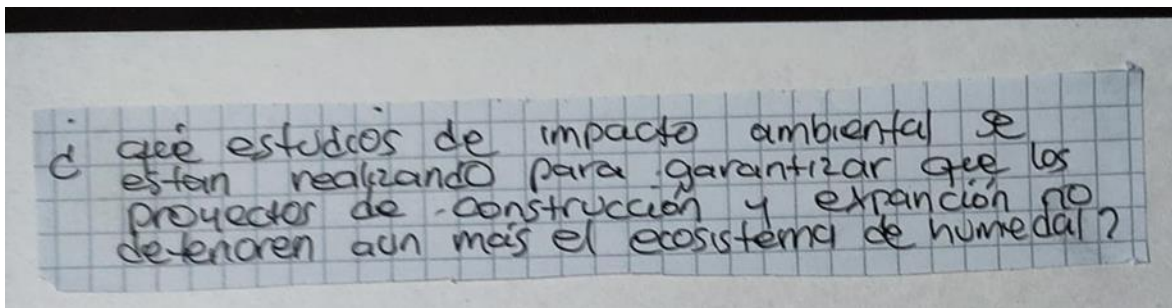 ¿ qué estudios de impacto ambiental se
estan realizando para garantizar que los
proyectos de construcción y expanción no
deterioren aun más el ecosistema de humedal?